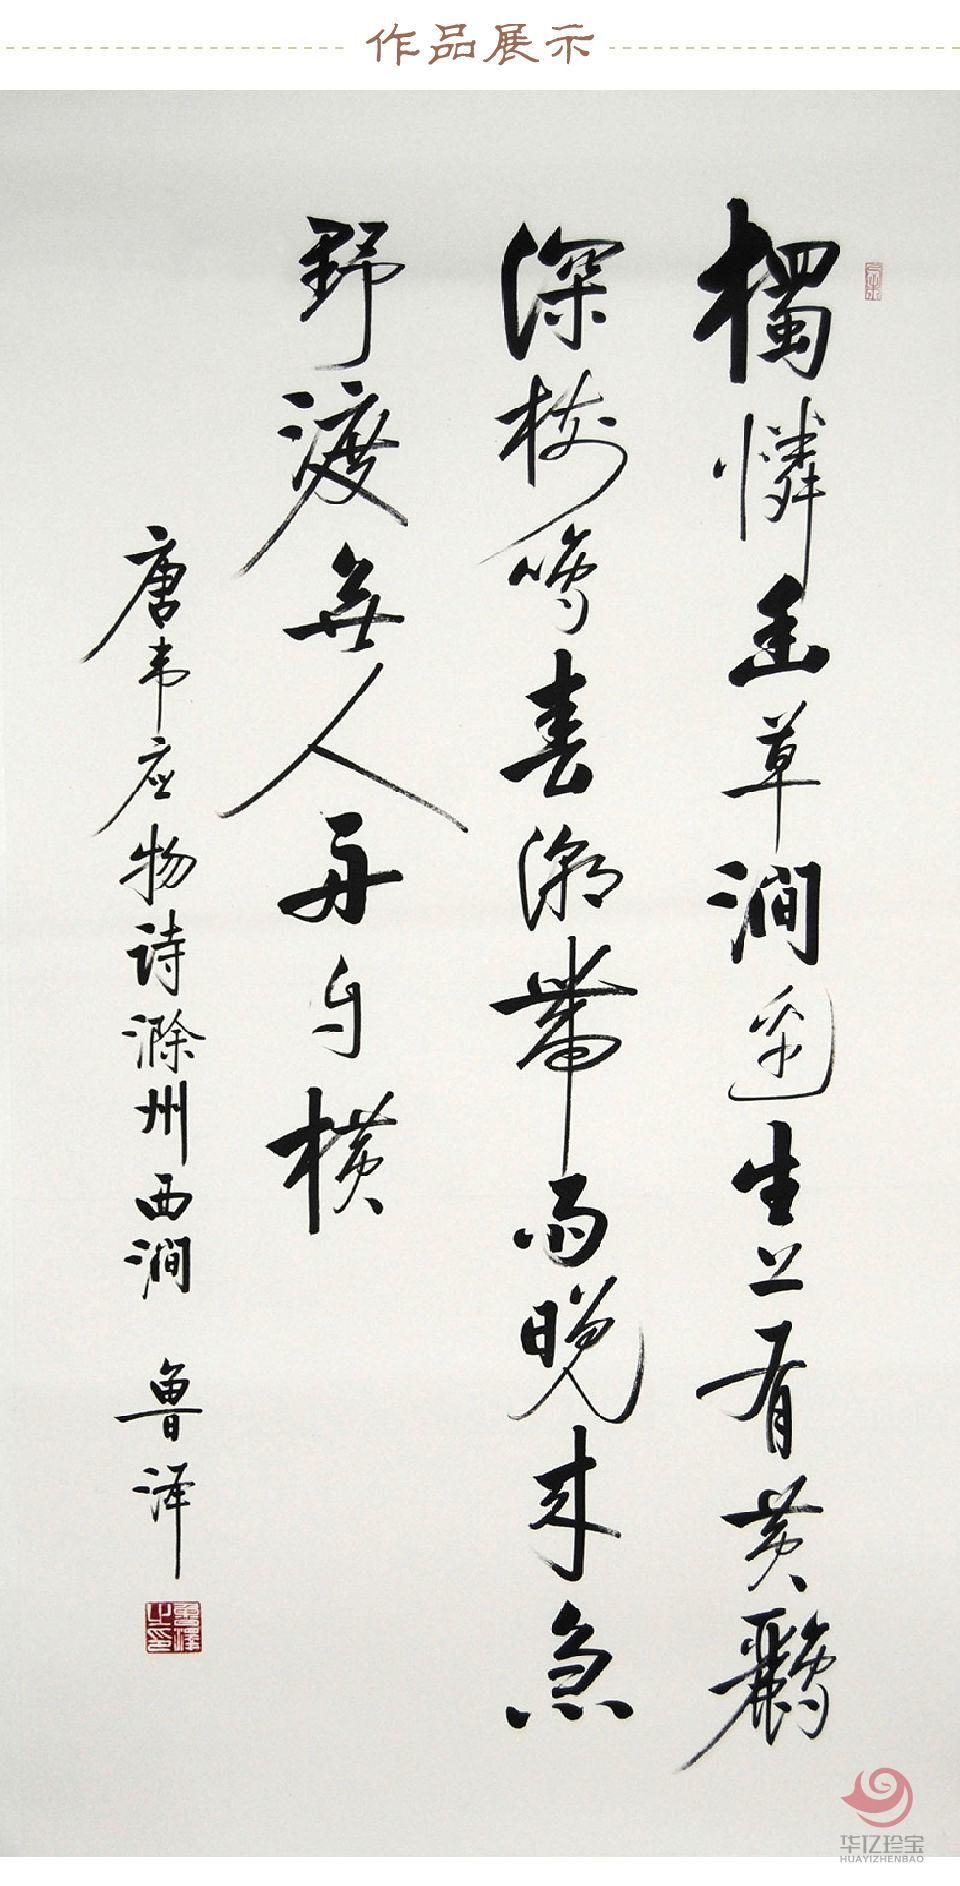 作品展示
獨憐幽草澗邊生上有黄鸝
深樹鳴春潮帶雨晚来急
野渡無人舟自横
唐韦应物诗滁州西澗 鲁泽
魯澤之印
华亿珍宝
HUAYIZHENBAO